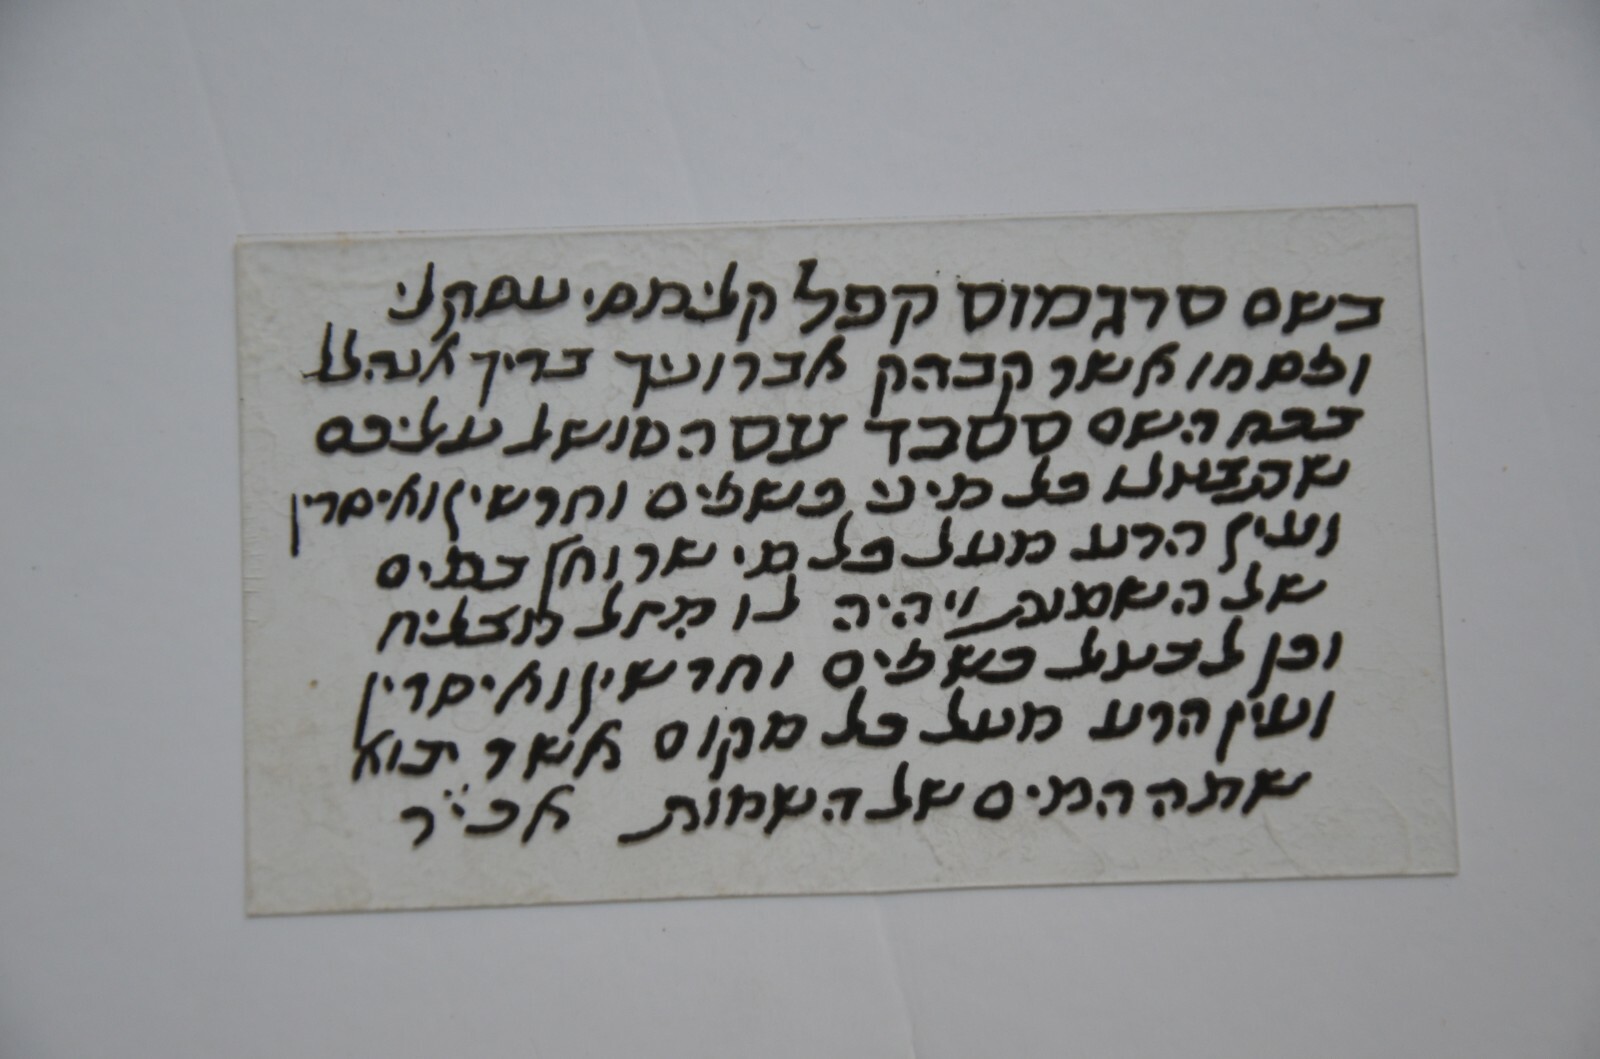 בשם סרגמוס קפל קלימסי עסקלי
וזמחו אשר קבהק אברוניך בדיך אנהלל
בכח השם סטבד עטס המושל עליכם
שתצילו כל מיני כשפים וחרשין ואיסרין
ועין הרע מעל כל מי שרוחץ במים
של השמות ויהיה לו מזל מצליח
וכן לבטל כשפים וחרשין ואיסרין
ועין הרע מעל כל מקום אשר יבוא
שמה המים של השמות אכי״ר